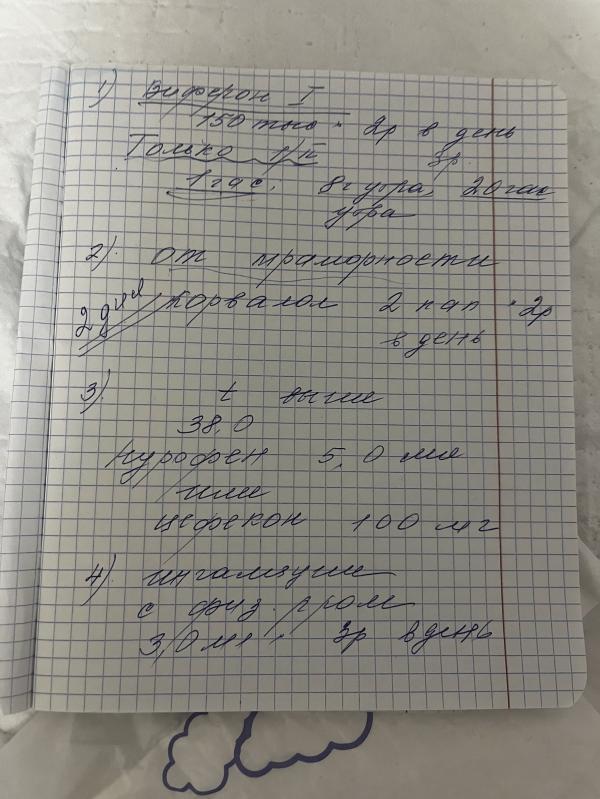 1) Виферон I
150 тыс · 2р в день
Только 3р.
1 час. 8ч утра, 20
утра
2). от мраморности
2 дня Корвалол 2 кап · 2р
в день
3). t выше
38,0
Нурофен 5,0 мл
или
Цефекон 100 мг
4). ингаляции
с физ. р-ром
3,0 мл 3р в день